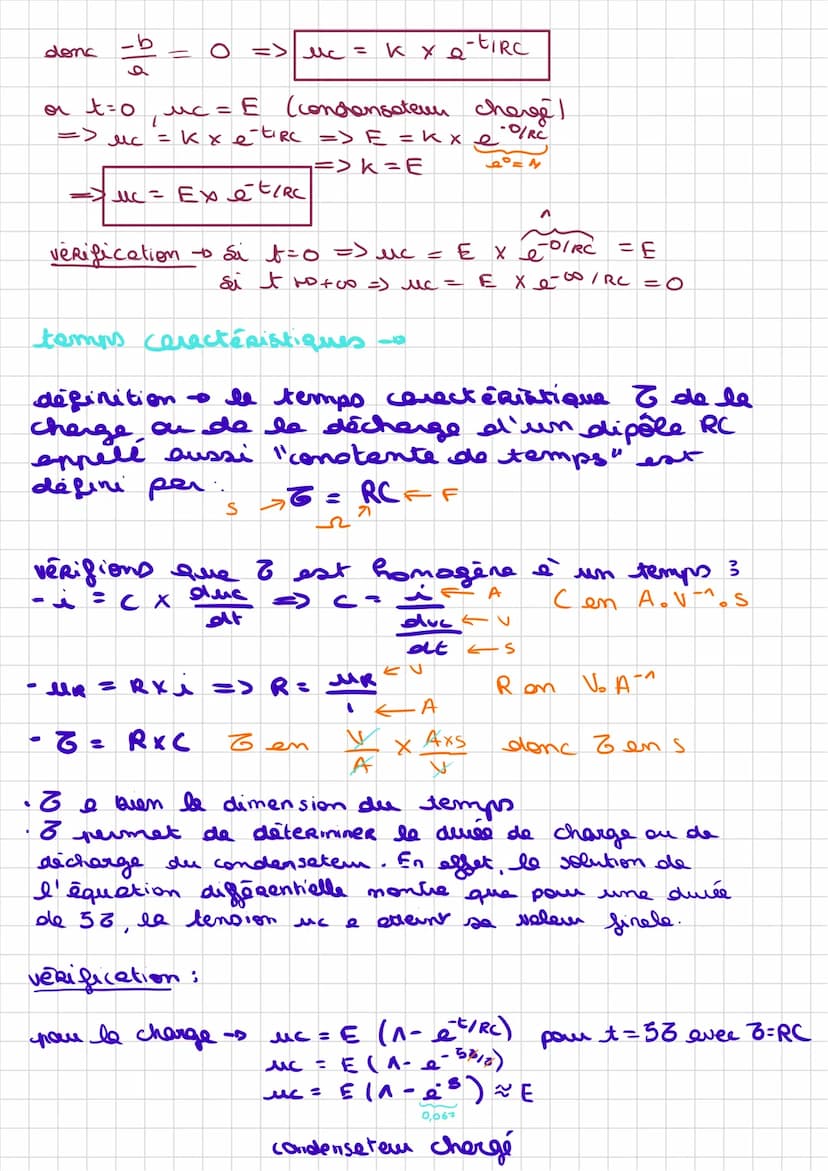 donc -b/a = 0 => uc = K x e^-t/RC
or t=0, uc = E (condensateur chargé)
=> uc = K x e^-t/RC => E = K x e^-0/RC
e^0 = 1
=> k = E
=> uc = E x e^-t/RC
1
vérification → Si t=0 => uc = E x e^-0/RC = E
Si t → +∞ => uc = E x e^-∞/RC = 0
temps caractéristiques →
définition → le temps caractéristique τ de la
charge ou de la décharge d'un dipôle RC
appellé aussi "constante de temps" est
défini par :
s → τ = RC ← F
Ω
vérifions que τ est homogène à un temps :
- i = C x duc/dt => C = i/(duc/dt) ← A ← V ← s C en A.V^-1.s
- uR = R x i => R = uR/i ← V ← A R en V.A^-1
- τ = R x C τ en V/A x Axs/V donc τ en s
. τ a bien la dimension du temps
. τ permet de déterminer la durée de charge ou de
décharge du condensateur. En effet, la solution de
l'équation différentielle montre que pour une durée
de 5τ, la tension uc a atteint sa valeur finale.
vérification :
pour la charge → uc = E (1 - e^-t/RC) pour t = 5τ avec τ=RC
uc = E (1 - e^-5τ/τ)
uc = E (1 - e^-5) ≈ E
0,067
condensateur chargé